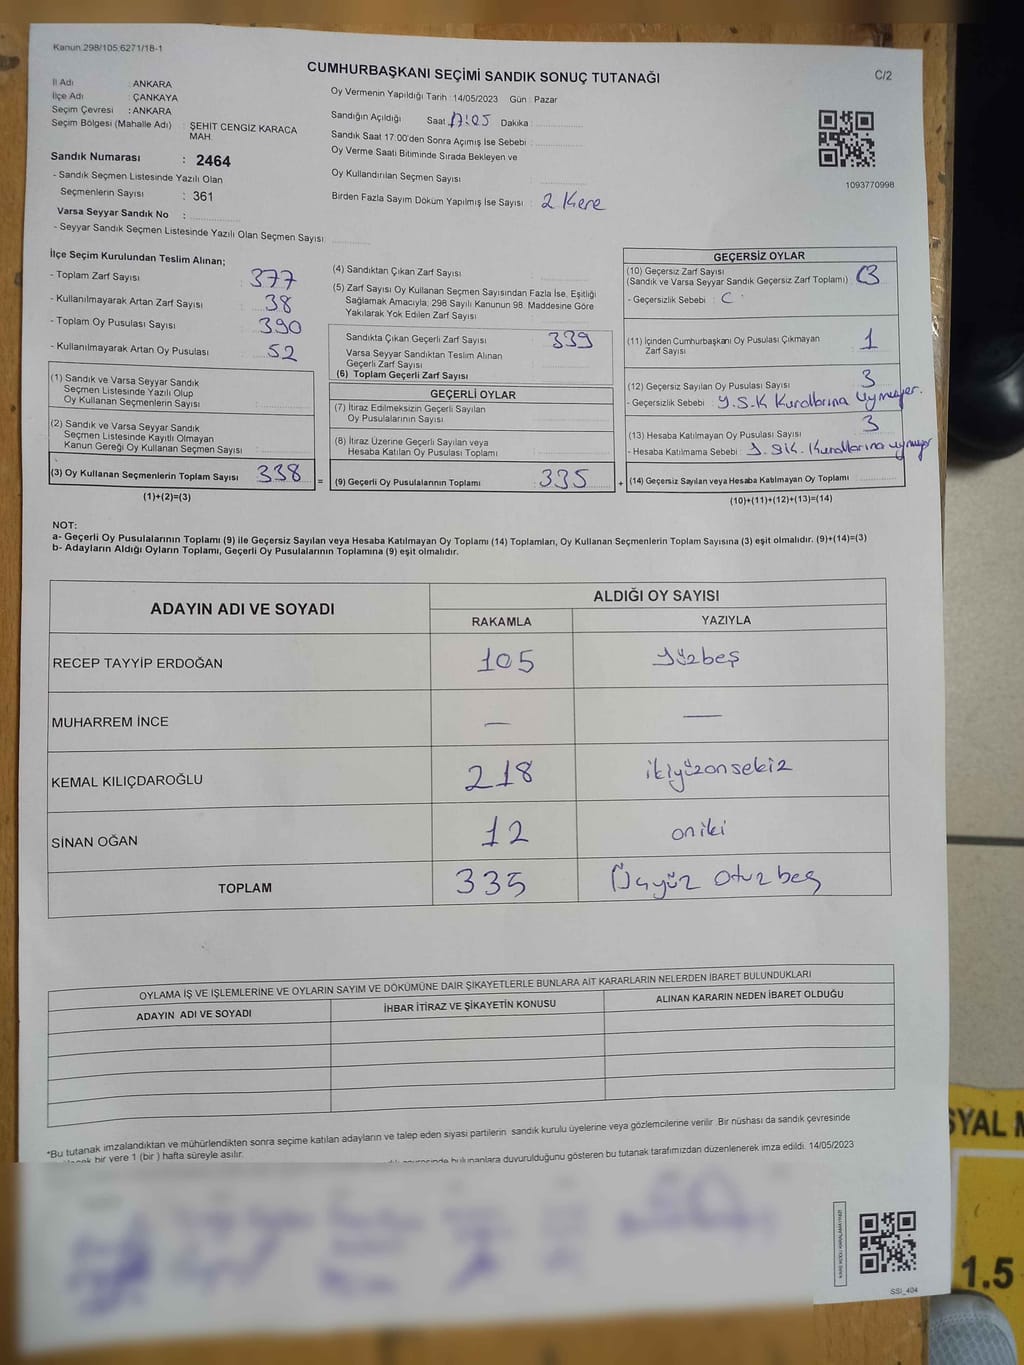 Kanun.298/105.6271/18-1
CUMHURBAŞKANI SEÇİMİ SANDIK SONUÇ TUTANAĞI
C/2
İl Adı : ANKARA
İlçe Adı : ÇANKAYA
Seçim Çevresi : ANKARA
Seçim Bölgesi (Mahalle Adı) : ŞEHİT CENGİZ KARACA MAH.
Sandık Numarası : 2464
- Sandık Seçmen Listesinde Yazılı Olan
Seçmenlerin Sayısı : 361
Varsa Seyyar Sandık No :
- Seyyar Sandık Seçmen Listesinde Yazılı Olan Seçmen Sayısı:
Oy Vermenin Yapıldığı Tarih : 14/05/2023 Gün : Pazar
Sandığın Açıldığı Saat 17:05 Dakika :
Sandık Saat 17:00'den Sonra Açımış İse Sebebi :
Oy Verme Saati Bitiminde Sırada Bekleyen ve
Oy Kullandırılan Seçmen Sayısı :
Birden Fazla Sayım Döküm Yapılmış İse Sayısı : 2 Kere
1093770998
İlçe Seçim Kurulundan Teslim Alınan;
- Toplam Zarf Sayısı 377
- Kullanılmayarak Artan Zarf Sayısı : 38
- Toplam Oy Pusulası Sayısı : 390
- Kullanılmayarak Artan Oy Pusulası : 52
(1) Sandık ve Varsa Seyyar Sandık
Seçmen Listesinde Yazılı Olup
Oy Kullanan Seçmenlerin Sayısı :
(2) Sandık ve Varsa Seyyar Sandık
Seçmen Listesinde Kayıtlı Olmayan
Kanun Gereği Oy Kullanan Seçmen Sayısı :
(3) Oy Kullanan Seçmenlerin Toplam Sayısı 338 =
(1)+(2)=(3)
(4) Sandıktan Çıkan Zarf Sayısı :
(5) Zarf Sayısı Oy Kullanan Seçmen Sayısından Fazla İse, Eşitliği
Sağlamak Amacıyla; 298 Sayılı Kanunun 98. Maddesine Göre
Yakılarak Yok Edilen Zarf Sayısı :
Sandıkta Çıkan Geçerli Zarf Sayısı : 339
Varsa Seyyar Sandıktan Teslim Alınan
Geçerli Zarf Sayısı :
(6) Toplam Geçerli Zarf Sayısı
GEÇERLİ OYLAR
(7) İtiraz Edilmeksizin Geçerli Sayılan
Oy Pusulalarının Sayısı :
(8) İtiraz Üzerine Geçerli Sayılan veya
Hesaba Katılan Oy Pusulası Toplamı :
(9) Geçerli Oy Pusulalarının Toplamı : 335 +
GEÇERSİZ OYLAR
(10) Geçersiz Zarf Sayısı
(Sandık ve Varsa Seyyar Sandık Geçersiz Zarf Toplamı) :
- Geçersizlik Sebebi :
(11) İçinden Cumhurbaşkanı Oy Pusulası Çıkmayan
Zarf Sayısı 1
(12) Geçersiz Sayılan Oy Pusulası Sayısı : 3
- Geçersizlik Sebebi : Y.S.K Kurallarına Uymuyor.
(13) Hesaba Katılmayan Oy Pusulası Sayısı : 3
- Hesaba Katılmama Sebebi : Y.SK. Kurallarına uymuyor
(14) Geçersiz Sayılan veya Hesaba Katılmayan Oy Toplamı :
(10)+(11)+(12)+(13)=(14)
NOT:
a- Geçerli Oy Pusulalarının Toplamı (9) ile Geçersiz Sayılan veya Hesaba Katılmayan Oy Toplamı (14) Toplamları, Oy Kullanan Seçmenlerin Toplam Sayısına (3) eşit olmalıdır. (9)+(14)=(3)
b- Adayların Aldığı Oyların Toplamı, Geçerli Oy Pusulalarının Toplamına (9) eşit olmalıdır.
ADAYIN ADI VE SOYADI
ALDIĞI OY SAYISI
RAKAMLA YAZIYLA
RECEP TAYYİP ERDOĞAN 105 Yüzbeş
MUHARREM İNCE — —
KEMAL KILIÇDAROĞLU 218 ikiyüzonsekiz
SİNAN OĞAN 12 oniki
TOPLAM 335 Üçyüz otuzbeş
OYLAMA İŞ VE İŞLEMLERİNE VE OYLARIN SAYIM VE DÖKÜMÜNE DAİR ŞİKAYETLERLE BUNLARA AİT KARARLARIN NELERDEN İBARET BULUNDUKLARI
ADAYIN ADI VE SOYADI
İHBAR İTİRAZ VE ŞİKAYETİN KONUSU
ALINAN KARARIN NEDEN İBARET OLDUĞU
*Bu tutanak imzalandıktan ve mühürlendikten sonra seçime katılan adayların ve talep eden siyasi partilerin sandık kurulu üyelerine veya gözlemcilerine verilir. Bir nüshası da sandık çevresinde
bir yere 1 (bir ) hafta süreyle asılır.
bulunanlara duyurulduğunu gösteren bu tutanak tarafımızdan düzenlenerek imza edildi. 14/05/2023
SSI_404
SYAL M
1.5